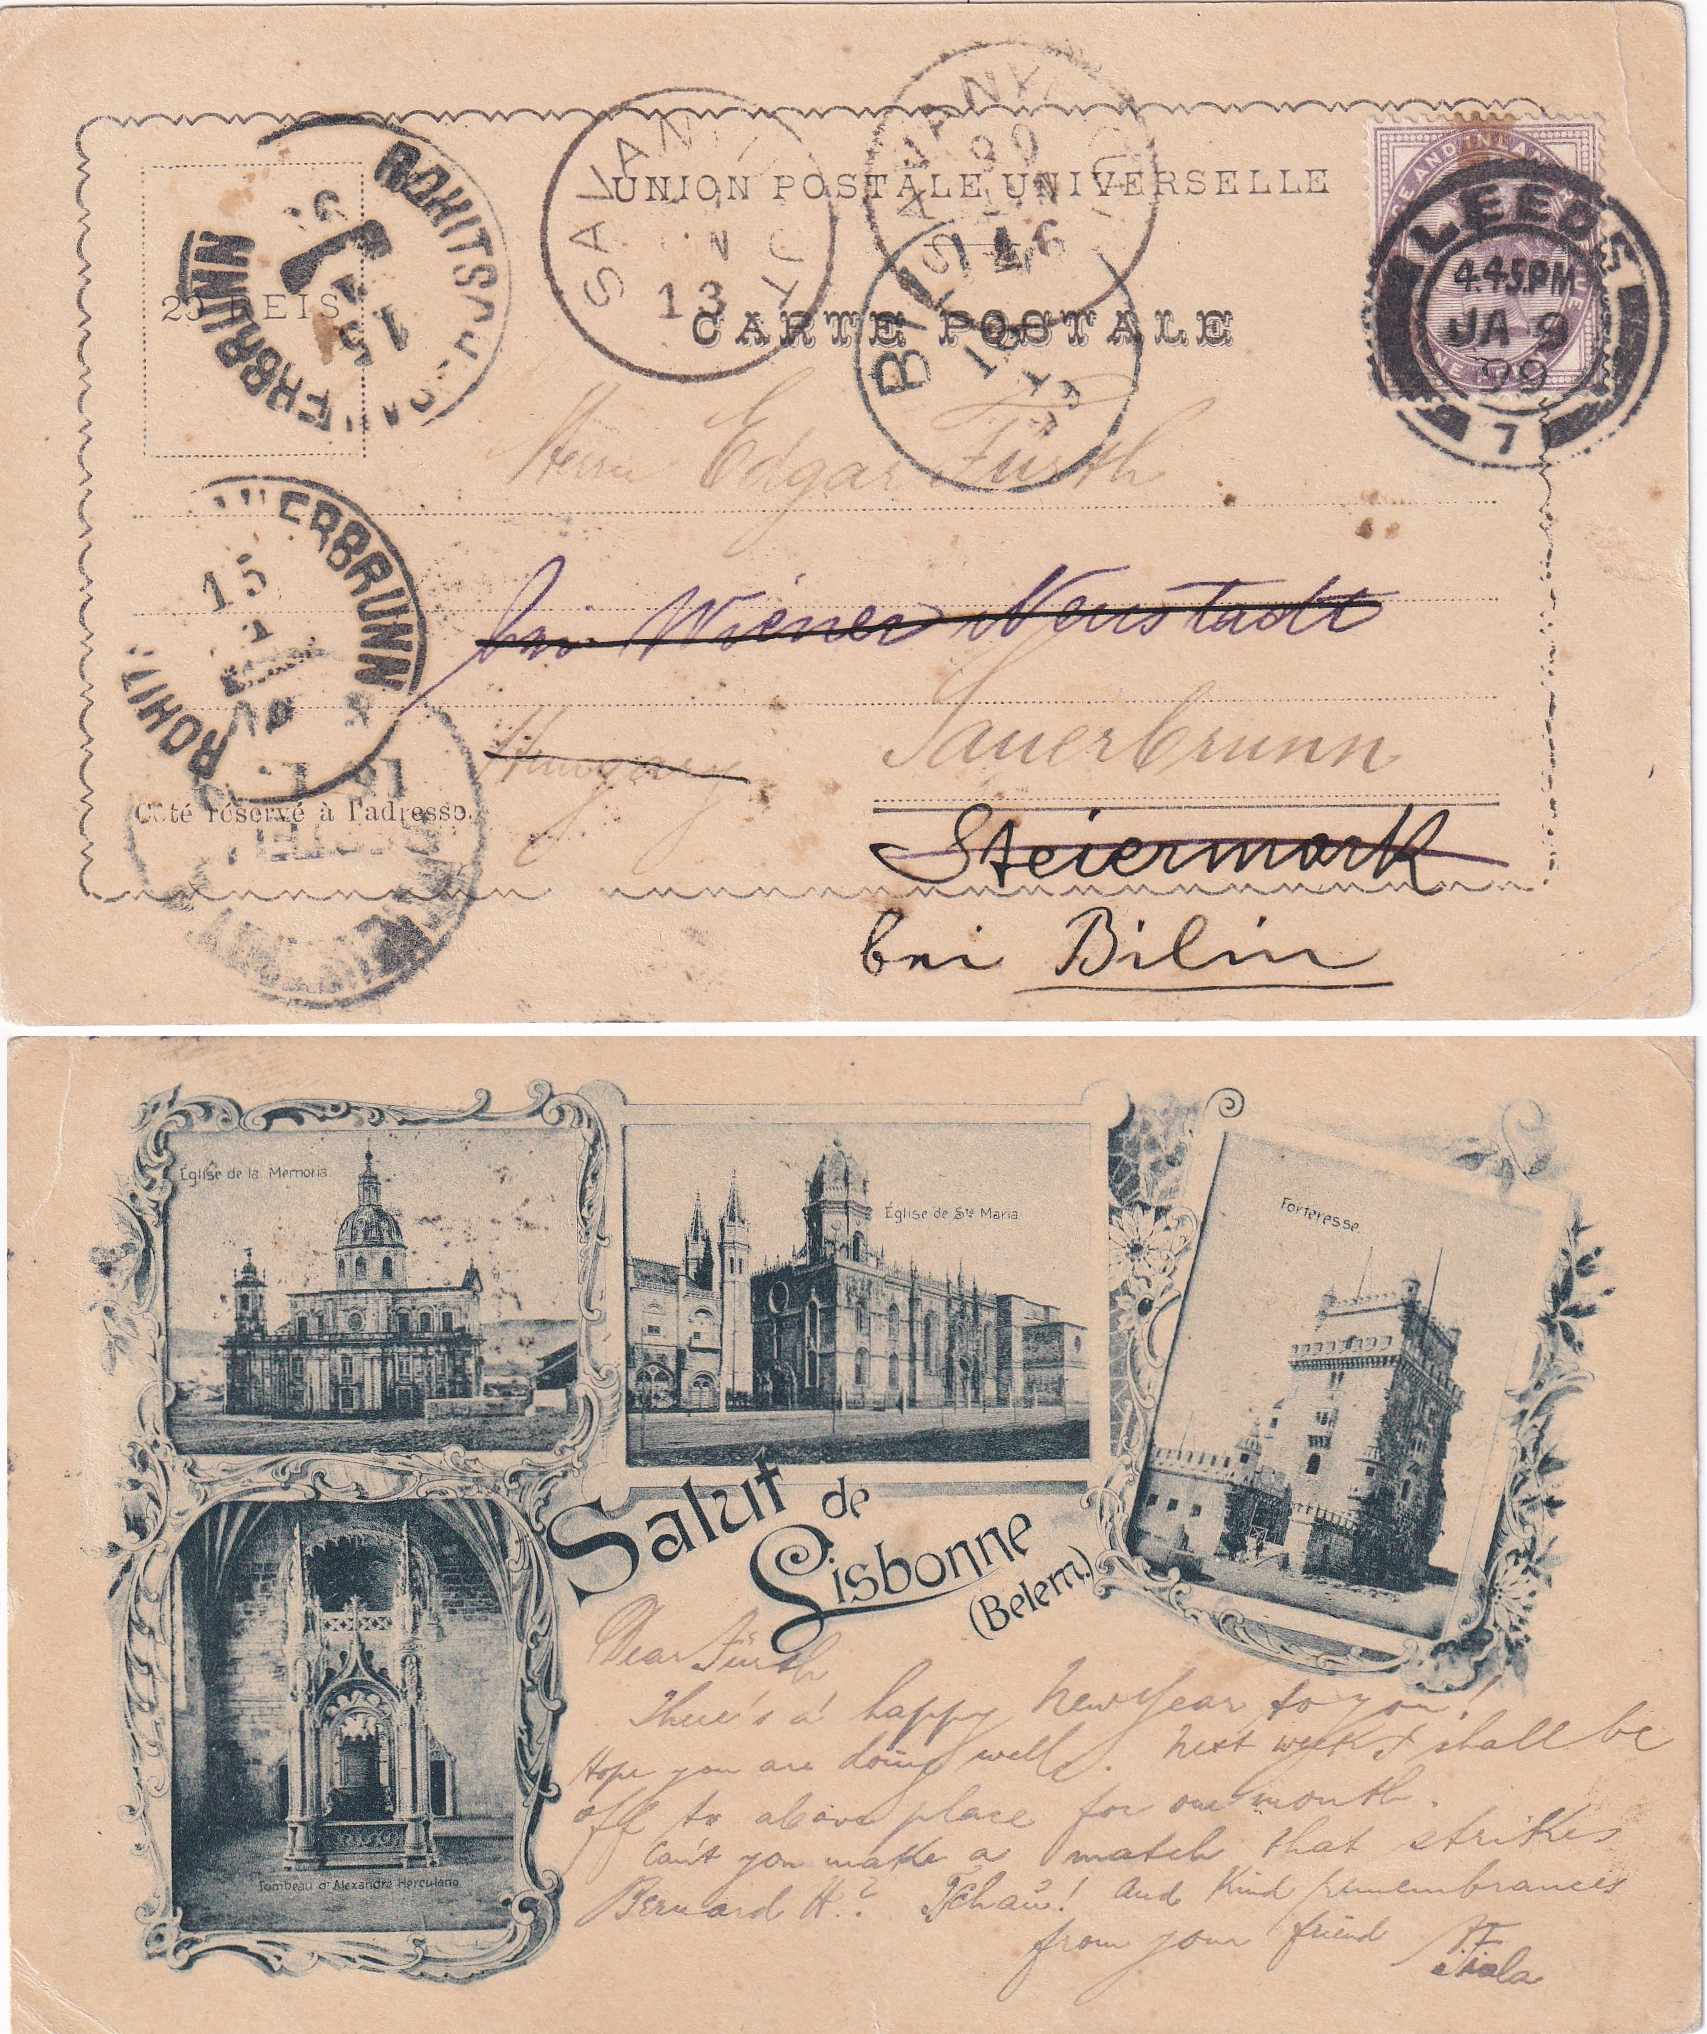 UNION POSTALE UNIVERSELLE
CARTE POSTALE
20 REIS
ROHITSCH SAUERBRUNN
15
1
SAVANYUKUT
13
SAVANYUKUT
99
16
BILIN
18
1
REVENUE AND INLAND
LEEDS
4.45.PM
JA 9
99
7
Herrn Edgar Fürth
bei Wiener Neustadt
ROHIT ERBRUNN
15
1
Hungary
Sauerbrunn
Côté réservé à l'adresse.
Steiermark
bei Bilin
Église de la Memoria
Église de Ste Maria
Forteresse.
Salut de
Lisbonne
(Belem.)
Tombeau d'Alexandre Herculano
Dear Fürth
There's a happy New Year to you!
Hope you are doing well. Next week I shall be
off to above place for one month.
Can't you make a match that strikes
Bernard H.? And kind remembrances
from your friend